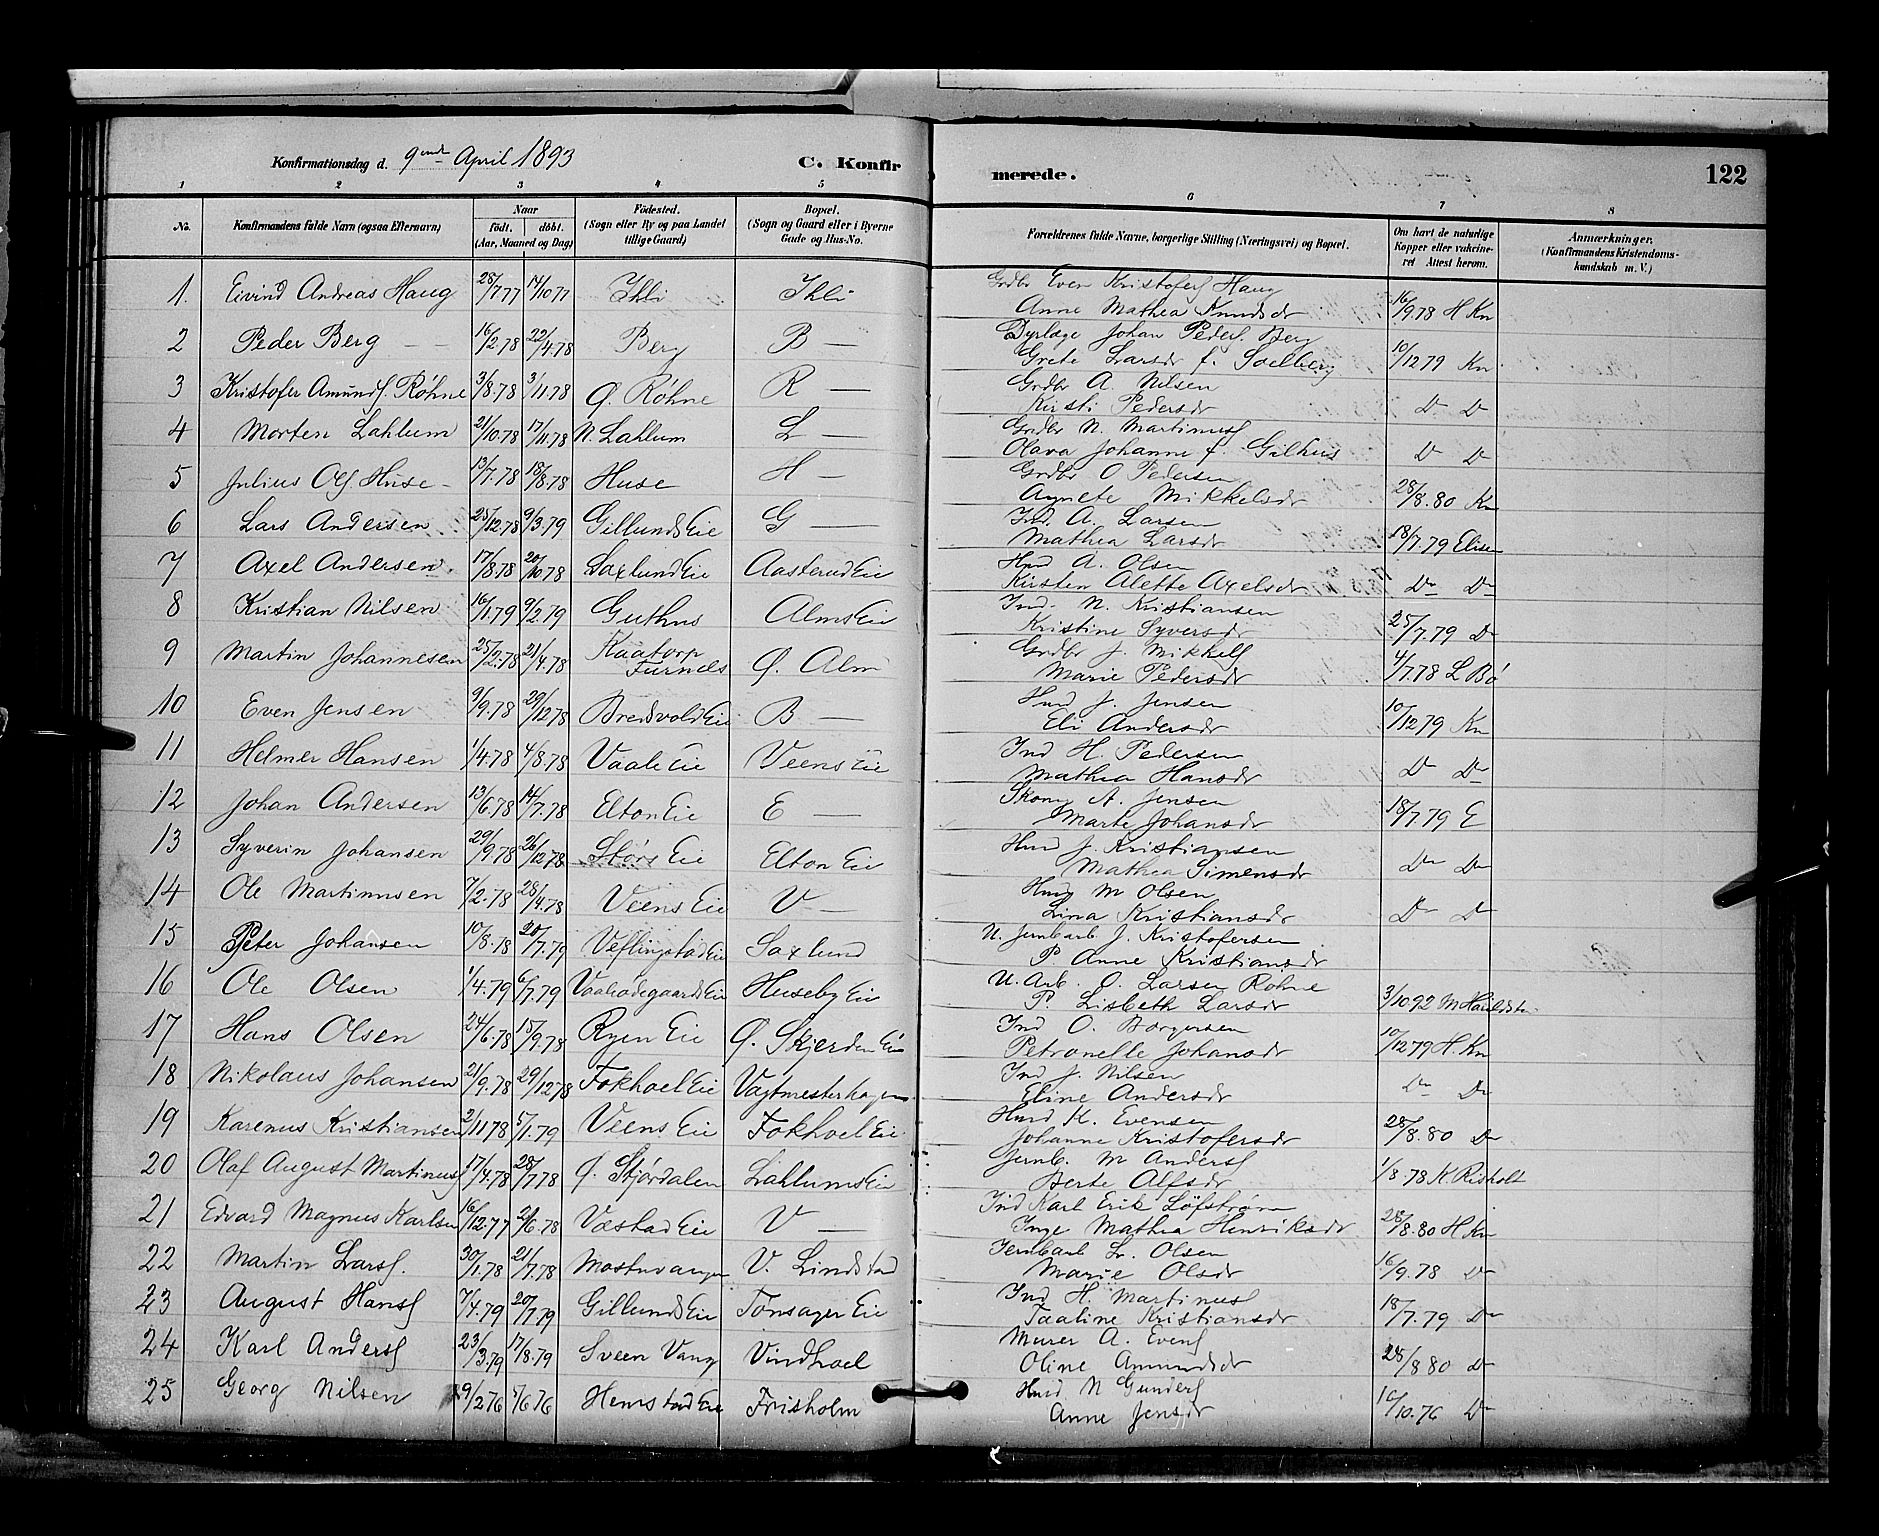 Konfirmationsdag d. 9nde April 1893 C. Konfirmerede. 122
1 2 3 4 5 6 7 8
No. Konfirmandens fulde Navn (ogsaa Efternavn) Naar født. døbt. (Aar, Maaned og Dag) Fødested. (Sogn eller By og paa Landet tillige Gaard) Bopæl. (Sogn og Gaard eller i Byerne Gade og Hus-No. Forældrenes fulde Navne, borgerlige Stilling (Næringsvei) og Bopæl. Om havt de naturlige Kopper eller vakcineret Attest herom. Anmærkninger. (Konfirmandens Kristendomskundskab m. V.)
1. Eivind Andreas Haug 28/7 77 14/10 77 Ihli Ihli Grdbr Even Kristofers Haug
Anne Mathea Knudsdr 16/9.78 H Kn
2 Peder Berg 16/2.78 22/4.78 Berg B — Dyrlæge Johan Peders. Berg
Grete Larsdr f. Soelberg 10/12 79 Kn
3 Kristofer Amunds. Røhne 3/8.78 3/11.78 Ø. Røhne R — Grdbr A. Nilsen
Kirsti Pedersdr D D
4 Morten Lahlum 21/10.78 17/11.78 N. Lahlum L — Grdbr N. Martinus
Olava Johanne f. Gilhus D D
5 Julius Ols. Huse 13/7.78 18/8.78 Huse H — Grdbr O Pedersen
Agnete Mikkelsdr 28/8.80 Kn
6 Lars Andersen 25/12.78 9/3.79 Gillunds Eie G — Ind. A. Larsen
Mathea Larsdr 18/7.79 Elisen
7 Axel Andersen 17/8.78 20/10.78 Saxlund Eie Aasterud Eie Hmd A. Olsen
Kirsten Alette Axelsdr D D
8 Kristian Nilsen 16/1.79 9/2.79 Guthus Alms Eie Ind. N. Kristiansen
Kristine Syversdr 25/7.79 D
9 Martin Johannesen 25/2.78 21/4.78 Kaatorp Furnes Ø. Alm Grdbr J. Mikkels
Marie Pedersdr 4/7.78 L Bø
10 Even Jensen 9/9.78 29/12 78 Bredvold Eie B — Hmd J. Jensen
Eli Andersdr 10/12 79 Kn
11 Helmer Hansen 1/4.78 4/8.78 Vaale Eie Veens Eie Ind H. Pedersen
Mathea Hansdr D D
12 Johan Andersen 13/6.78 14/7.78 Elton Eie E — Skom A. Jensen
Marte Johansdr 18/7.79 E
13 Syverin Johansen 29/9.78 26/12.78 Stors Eie Elton Eie Hmd J. Kristiansen
Mathea Simensdr D D
14 Ole Martinusen 7/2.78 28/4.78 Veens Eie V — Hmd M Olsen
Lina Kristiansdr D D
15 Peter Johansen 10/8.78 20/7.79 Veflingstad Eie Saxlund U. Jernbarb. J. Kristofersen
P Anne Kristiansdr
16 Ole Olsen 1/4.79 6/7.79 Vaalodegaards Eie Huseby Eie U. Arb. O. Larsen Rohne
P. Lisbeth Larsdr 3/10 92
17 Hans Olsen 24/6.78 15/9.78 Ryen Eie Ø. Skjerden Eie Ind O. Borgersen
Petronelle Johansdr 10/12 79 H. Kn
18 Nikolaus Johansen 21/9.78 29/12 78 Fokhoel Eie Vagtmesterhagen Ind J. Nilsen
Eline Andersdr D D
19 Karenus Kristiansen 2/11 78 5/1.79 Veens Eie Fokhoel Eie Hmd K. Evensen
Johanne Kristofersdr 28/8.80 D
20 Olaf August Martinus 17/4.78 28/7 78 Ø. Stjørdalen Lahlums Eie Jernb. M Anders
Berte Alfsdr 1/8.78 K. Risholt
21 Edvard Magnus Karlsen 16/12.77 2/6.78 Vestad Eie V — Ind Karl Erik Løfstrøm
Inge Mathea Henriksdr 28/8.80 H Kn
22 Martin Lars. 30/1.78 21/7.78 Mostuvangen V. Lindstad Jernbarb L. Olsen
Marie Olsdr 16/9.78 D
23 August Hans 7/4.79 20/7 79 Gillunds Eie Tonsager Eie Ind H. Martinus
Taaline Kristiansdr 18/7.79 D
24 Karl Anders 23/3.79 17/8.79 Sveen Vang Vindhoel Murer A. Evens
Oline Amundsdr 28/8 80 D
25 Georg Nilsen 9/2 76 5/6 76 Hemstad Eie Frisholm Hmd N Gunders
Anne Jensdr 10/10.76 D